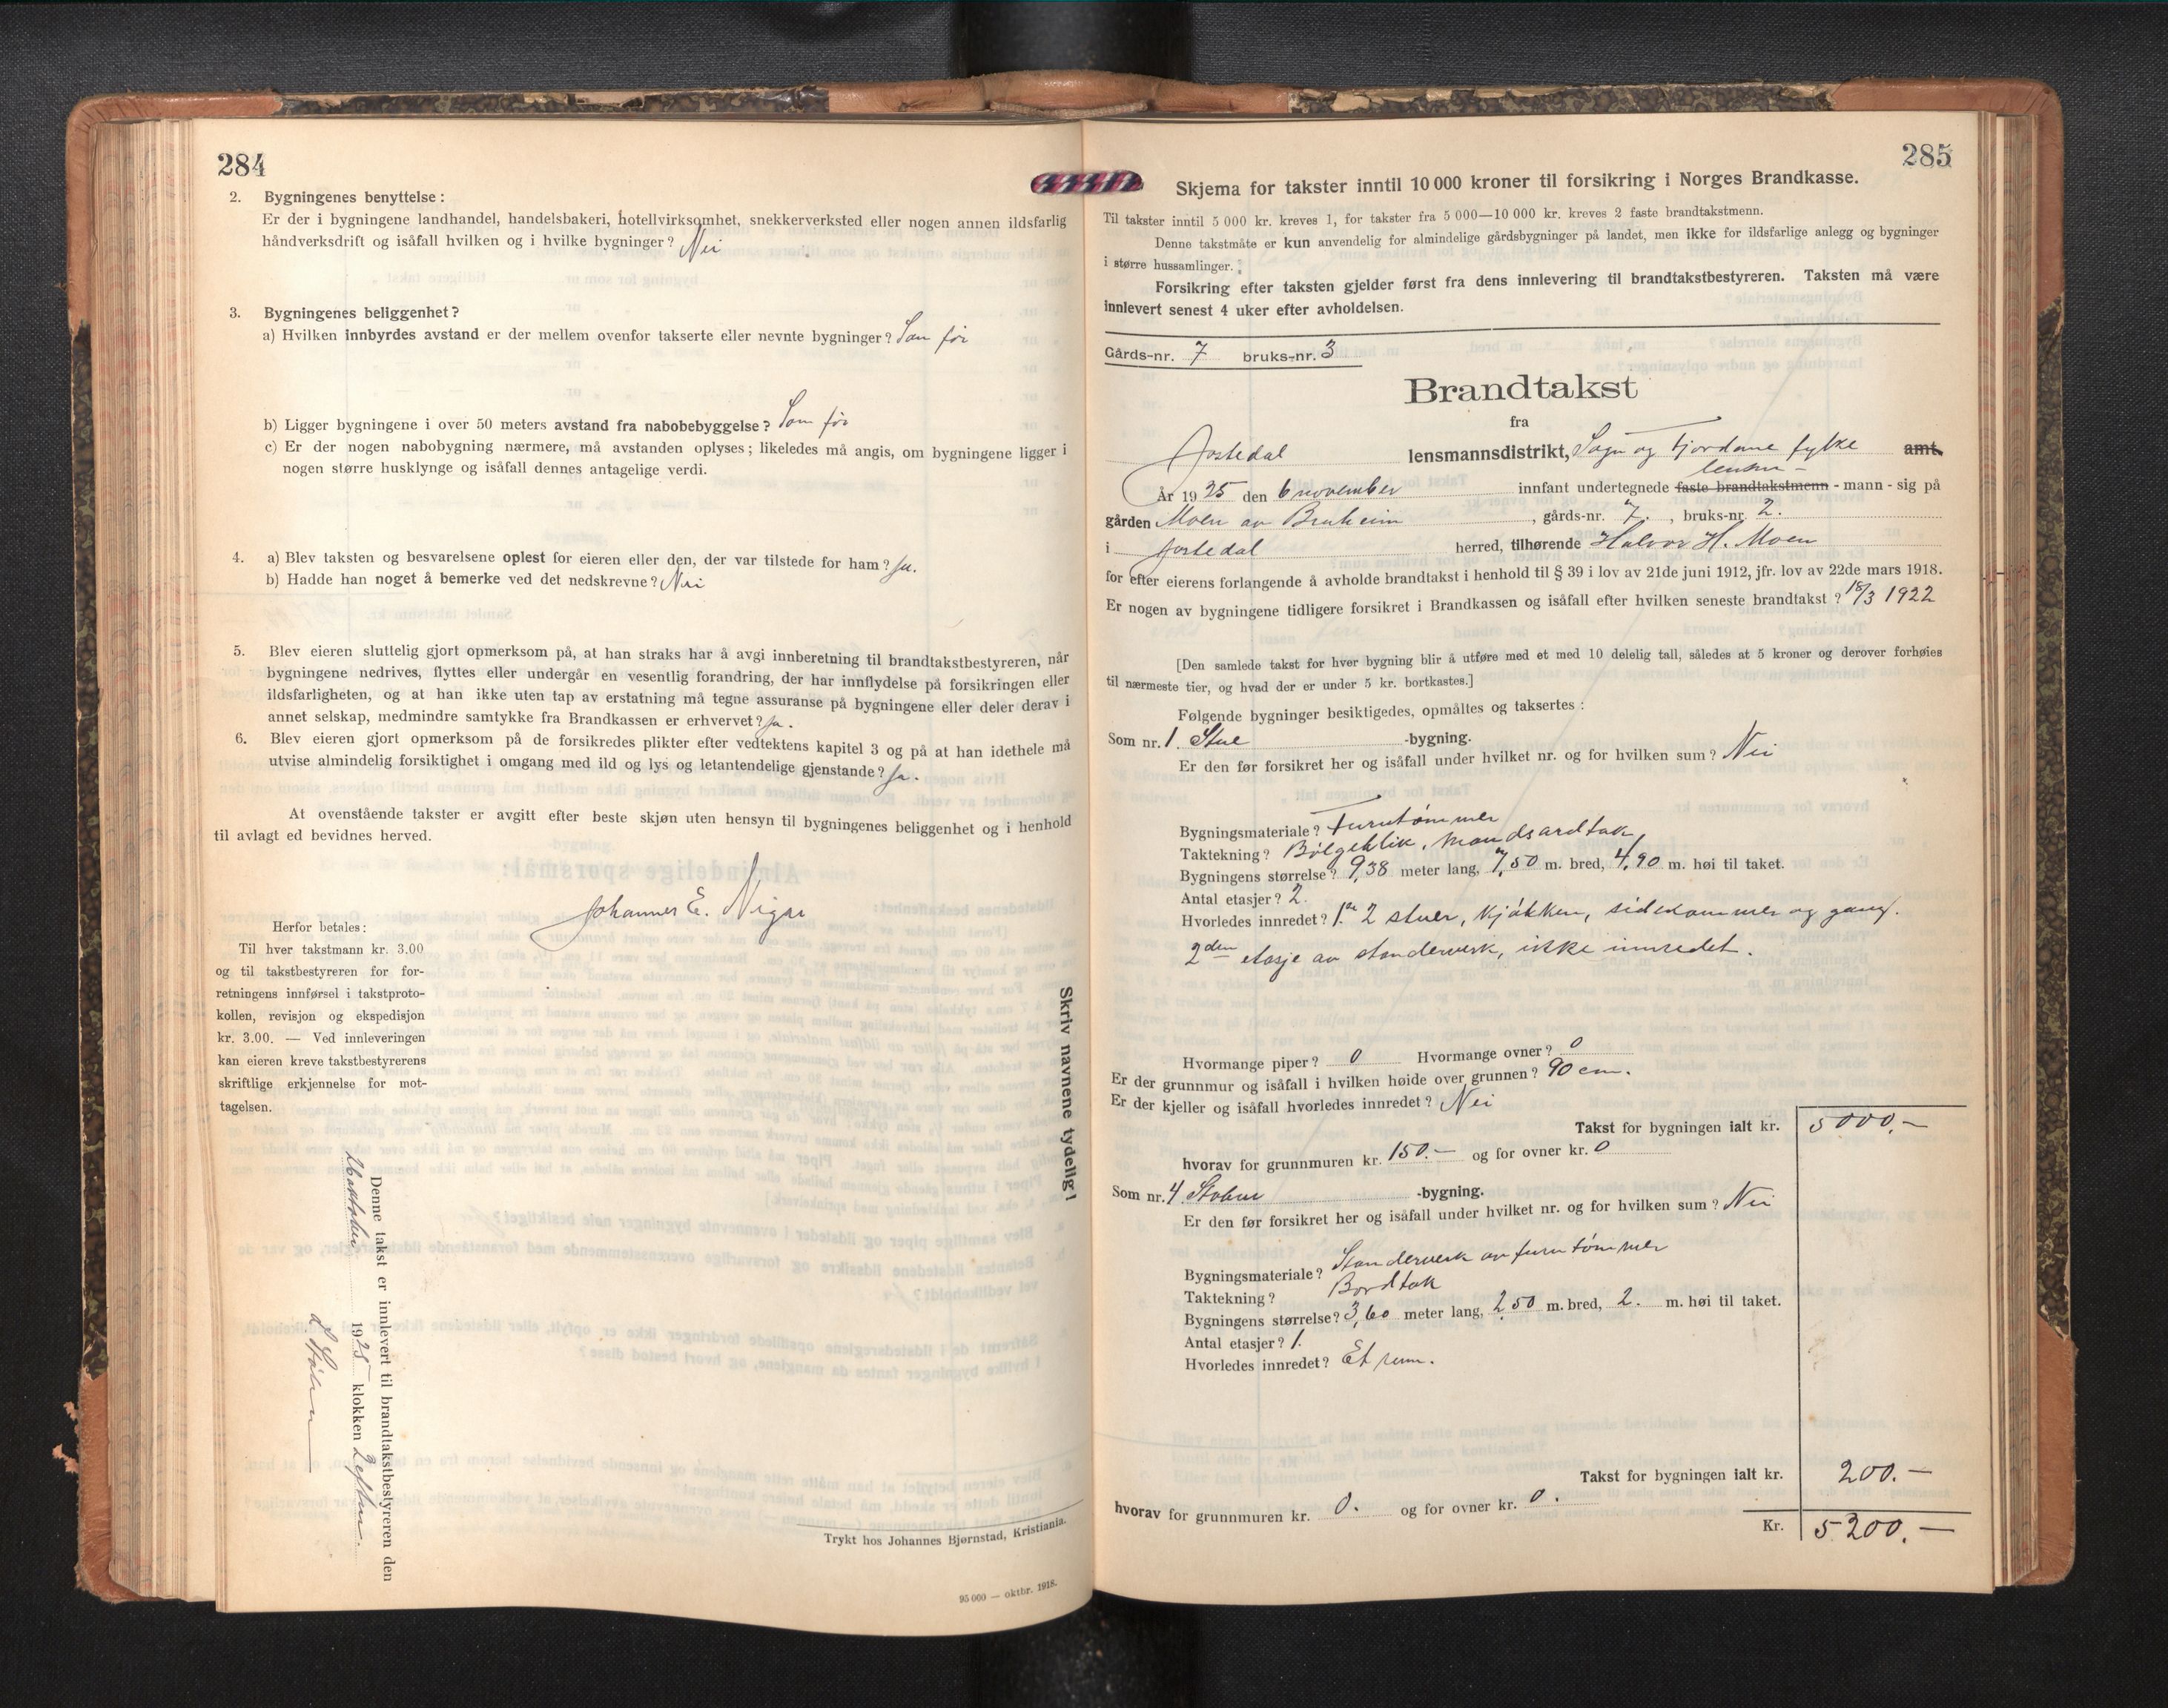 284
2. Bygningenes benyttelse:
Er der i bygningene landhandel, handelsbakeri, hotellvirksomhet, snekkerverksted eller nogen annen ildsfarlig
håndverksdrift og isåfall hvilken og i hvilke bygninger? Nei
3. Bygningenes beliggenhet?
a) Hvilken innbyrdes avstand er der mellem ovenfor takserte eller nevnte bygninger? Som før
b) Ligger bygningene i over 50 meters avstand fra nabobebyggelse? Som før
c) Er der nogen nabobygning nærmere, må avstanden oplyses; likeledes må angis, om bygningene ligger i
nogen større husklynge og isåfall dennes antagelige verdi.
4. a) Blev taksten og besvarelsene oplest for eieren eller den, der var tilstede for ham? Ja.
b) Hadde han noget å bemerke ved det nedskrevne? Nei
5. Blev eieren sluttelig gjort opmerksom på, at han straks har å avgi innberetning til brandtakstbestyreren, når
bygningene nedrives, flyttes eller undergår en vesentlig forandring, der har innflydelse på forsikringen eller
ildsfarligheten, og at han ikke uten tap av erstatning må tegne assuranse på bygningene eller deler derav i
annet selskap, medmindre samtykke fra Brandkassen er erhvervet? Ja.
6. Blev eieren gjort opmerksom på de forsikredes plikter efter vedtektens kapitel 3 og på at han idethele må
utvise almindelig forsiktighet i omgang med ild og lys og letantendelige gjenstande? Ja.
At ovenstående takster er avgitt efter beste skjøn uten hensyn til bygningenes beliggenhet og i henhold
til avlagt ed bevidnes herved.
Johannes E. Nigar
Herfor betales:
Til hver takstmann kr. 3.00
og til takstbestyreren for for-
retningens innførsel i takstproto-
kollen, revisjon og ekspedisjon
kr. 3.00. — Ved innleveringen
kan eieren kreve takstbestyrerens
skriftlige erkjennelse for mot-
tagelsen.
Skriv navnene tydelig!
Denne takst er innlevert til brandtakstbestyreren den
oktober 1925 klokken 2 eftm.
Trykt hos Johannes Bjørnstad, Kristiania.
95 000 — oktbr. 1918.
285
Skjema for takster inntil 10 000 kroner til forsikring i Norges Brandkasse.
Til takster inntil 5 000 kr. kreves 1, for takster fra 5 000—10 000 kr. kreves 2 faste brandtakstmenn.
Denne takstmåte er kun anvendelig for almindelige gårdsbygninger på landet, men ikke for ildsfarlige anlegg og bygninger
i større hussamlinger.
Forsikring efter taksten gjelder først fra dens innlevering til brandtakstbestyreren. Taksten må være
innlevert senest 4 uker efter avholdelsen.
Gårds-nr. 7 bruks-nr. 3
Brandtakst
fra
Jostedal lensmannsdistrikt, Sogn og Fjordane fylke amt.
lensm-
År 1925 den 6 november innfant undertegnede faste brandtakstmenn - mann - sig på
gården Moen av Bruheim, gårds-nr. 7., bruks-nr. 2.
i Jostedal herred, tilhørende Halvor H. Moen
for efter eierens forlangende å avholde brandtakst i henhold til § 39 i lov av 21de juni 1912, jfr. lov av 22de mars 1918.
Er nogen av bygningene tidligere forsikret i Brandkassen og isåfall efter hvilken seneste brandtakst? 18/3 1922
[Den samlede takst for hver bygning blir å utføre med et med 10 delelig tall, således at 5 kroner og derover forhøies
til nærmeste tier, og hvad der er under 5 kr. bortkastes.]
Følgende bygninger besiktigedes, opmåltes og taksertes:
Som nr. 1. Stue -bygning.
Er den før forsikret her og isåfall under hvilket nr. og for hvilken sum? Nei
Bygningsmateriale? Furutømmer
Taktekning? Bølgeblik, mandsardtak
Bygningens størrelse? 9,38 meter lang, 7,50 m. bred, 4,90 m. høi til taket.
Antal etasjer? 2.
Hvorledes innredet? 1ste 2 stuer, kjøkken, sidekammer og gang.
2den etasje av standerverk, ikke innredet.
Hvormange piper? 0 Hvormange ovner? 0
Er der grunnmur og isåfall i hvilken høide over grunnen? 90 cm.
Er der kjeller og isåfall hvorledes innredet? Nei
Takst for bygningen ialt kr. 5000.—
hvorav for grunnmuren kr. 150.— og for ovner kr. 0
Som nr. 4. Stabur -bygning.
Er den før forsikret her og isåfall under hvilket nr. og for hvilken sum? Nei
Bygningsmateriale? Standerverk av furutømmer
Taktekning? Bordtak
Bygningens størrelse? 3,60 meter lang, 2,50 m. bred, 2. m. høi til taket.
Antal etasjer? 1.
Hvorledes innredet? Et rum.
Takst for bygningen ialt kr. 200.—
hvorav for grunnmuren kr. 0. og for ovner kr. 0.
Kr. 5200.—